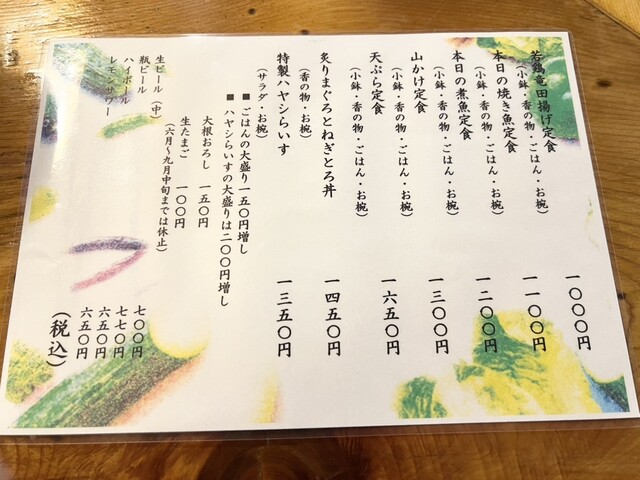 若鶏竜田揚げ定食 一〇〇〇円
(小鉢・香の物・ごはん・お椀)
本日の焼き魚定食 一一〇〇円
(小鉢・香の物・ごはん・お椀)
本日の煮魚定食 一二〇〇円
(小鉢・香の物・ごはん・お椀)
山かけ定食 一三〇〇円
(小鉢・香の物・ごはん・お椀)
天ぷら定食 一六五〇円
(小鉢・香の物・ごはん・お椀)
炙りまぐろとねぎとろ丼 一四五〇円
(香の物・お椀)
特製ハヤシらいす 一三五〇円
(サラダ・お椀)
■ ごはんの大盛り一五〇円増し
■ ハヤシらいすの大盛りは二〇〇円増し
大根おろし 一五〇円
生たまご 一〇〇円
(六月～九月中旬までは休止)
生ビール(中) 七〇〇円
瓶ビール 七七〇円
ハイボール 六五〇円
レモンサワー 六五〇円
(税込)